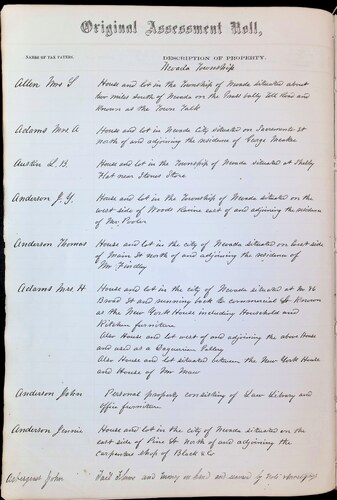 Original Assessment Roll,
NAMES OF TAX PAYERS.
DESCRIPTION OF PROPERTY.
Nevada Township
Allen Mrs S
House and lot in the Township of Nevada situated about
two miles South of Nevada on the Grass Valley Toll Road and
Known as the Town Talk
Adams Mrs A
House and lot in Nevada City situated on Sacramento St
north of and adjoining the residence of George
Austin L. B.
House and lot in the Township of Nevada situated at Shelby
Flat near Stones Store
Anderson J. Y.
House and lot in the Township of Nevada situated on the
west side of Woods Ravine east of and adjoining the residence
of Mr
Anderson Thomas
House and lot in the city of Nevada situated on west side
of Main St north of and adjoining the residence of
Mr Findley
Adams Mrs. H
House and lot in the city of Nevada situated at No 36
Broad St and running back to commercial St Known
as the New York House including Household and
Kitchen furniture
Also House and lot west of and adjoining the above House
and used as a Daguerrian Gallery
Also House and lot situated between the New York House
and House of Mr Maw
Anderson John
Personal property consisting of Law Library and
office furniture
Anderson Jennie
House and lot in the city of Nevada situated on the
east side of Pine St north of and adjoining the
carpenters shop of Black & Co
John
and money on hand and